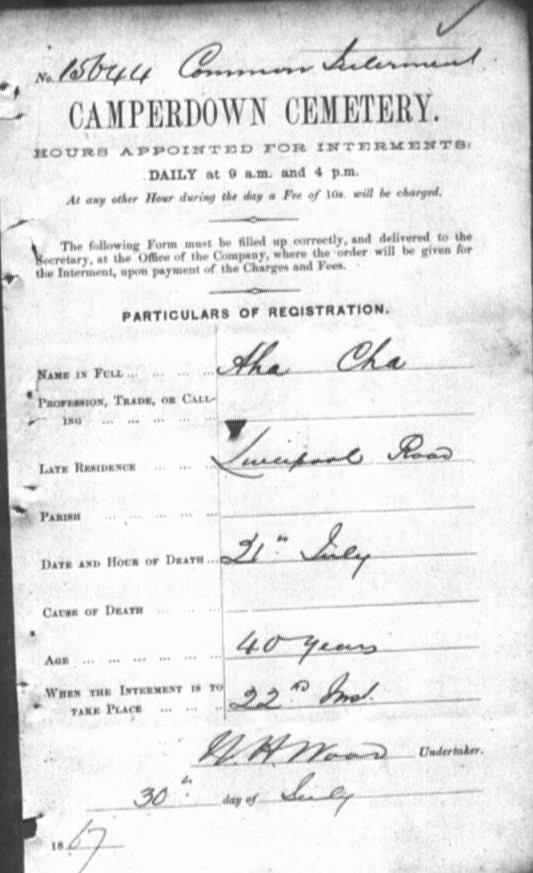 No. 15644 Common Interment
CAMPERDOWN CEMETERY.
HOURS APPOINTED FOR INTERMENTS:
DAILY at 9 a.m. and 4 p.m.
At any other Hour during the day a Fee of 10s. will be charged.
The following Form must be filled up correctly, and delivered to the
Secretary, at the Office of the Company, where the order will be given for
the Interment, upon payment of the Charges and Fees.
PARTICULARS OF REGISTRATION.
NAME IN FULL ... ... ... ... Aha Cha
PROFESSION, TRADE, OR CALL-
ING ... ... ... ... ...
LATE RESIDENCE ... ... ... Liverpool Road
PARISH ... ... ... ... ...
DATE AND HOUR OF DEATH ... 21st July
CAUSE OF DEATH ... ... ...
AGE ... ... ... ... ... ... 40 years
WHEN THE INTERMENT IS TO
TAKE PLACE ... ... ... 22nd Inst.
W. H. Wood Undertaker.
30th day of July
1867